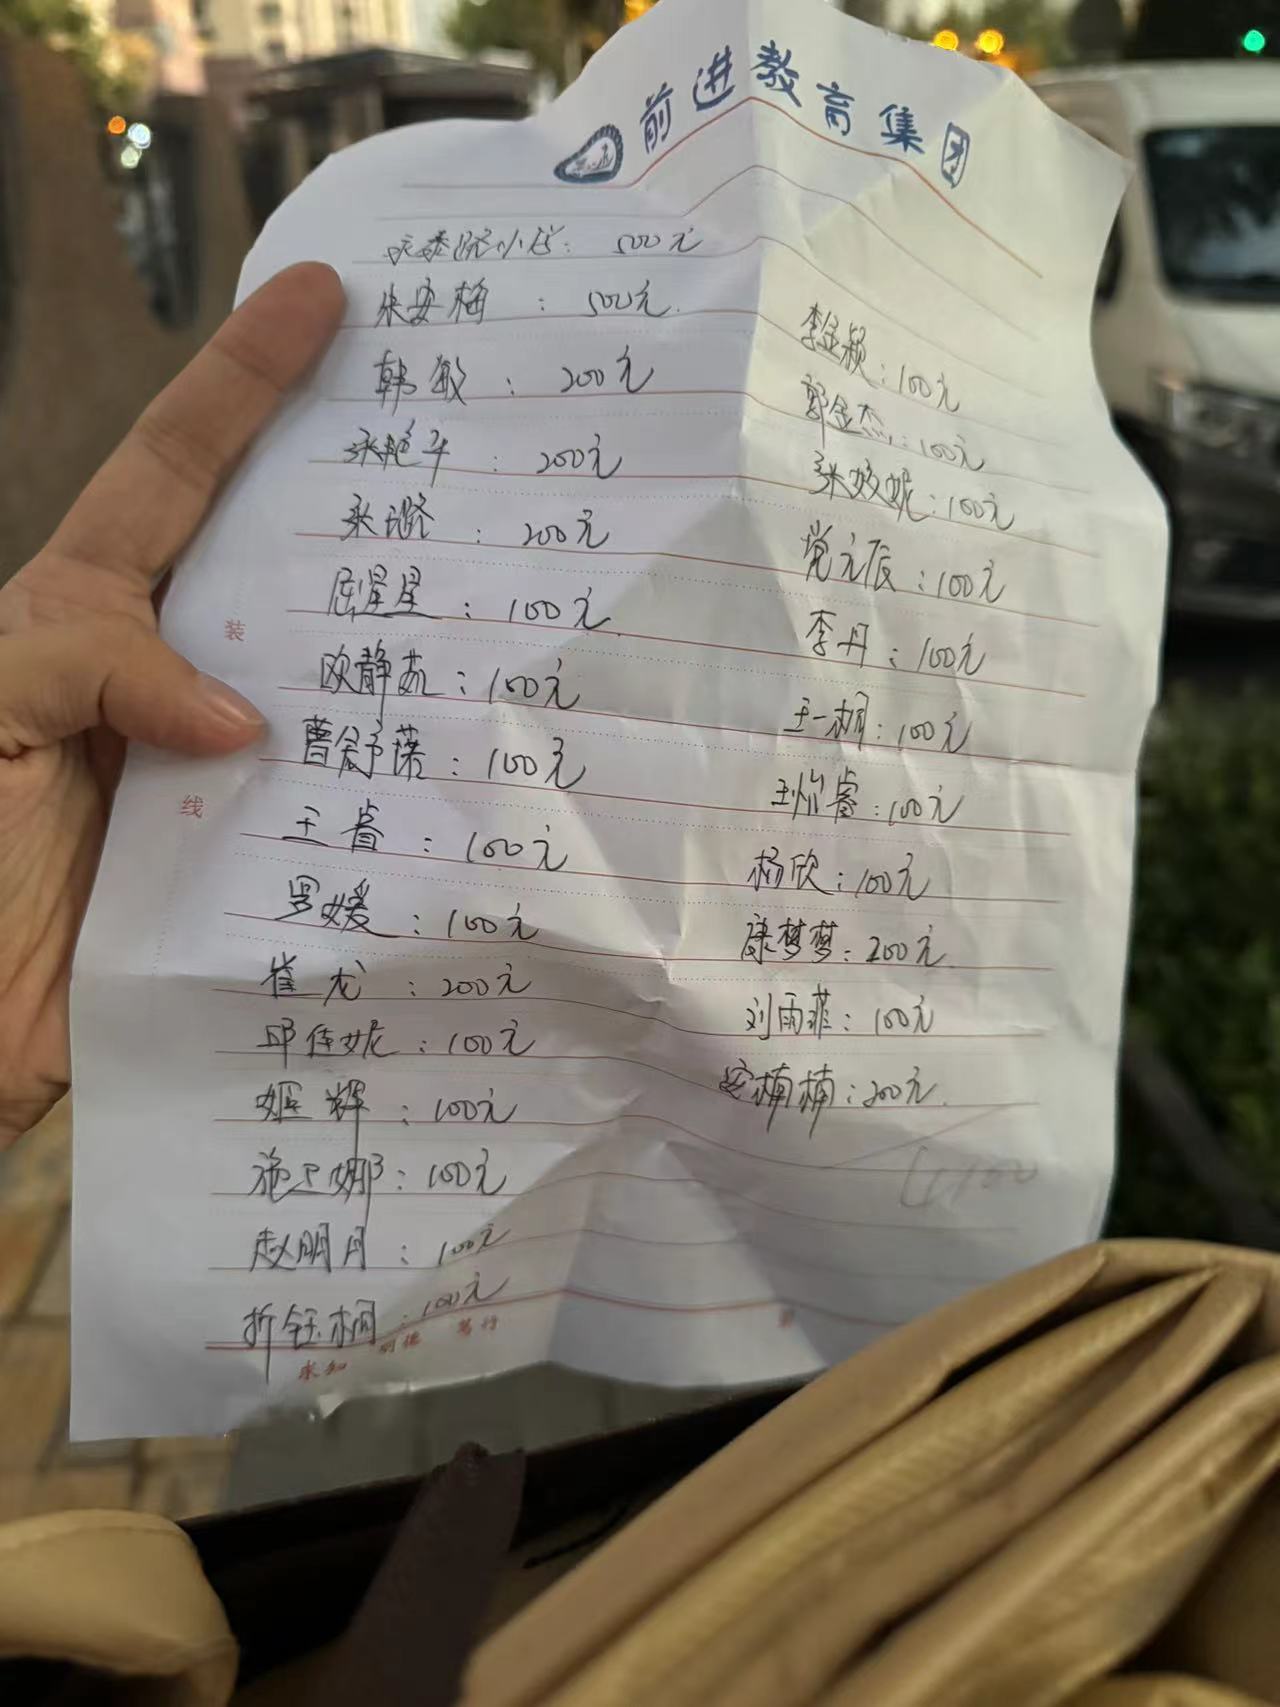 前进教育集团
永泰路小学：500元
朱安梅：500元
韩敏：200元
张艳平：200元
张璐：200元
屈星星：100元
欧静茹：100元
曹舒予諾：100元
王睿：100元
罗媛：100元
崔龙：200元
邱佳妮：100元
姬辉：100元
施卫娜：100元
赵明月：100元
折钰桐：100元
李金颖：100元
郭金杰：100元
张姣妮：100元
党元辰：100元
李丹：100元
王一桐：100元
王怡睿：100元
杨欣：100元
康梦梦：200元
刘雨菲：100元
安楠楠：200元
装
线
求知 明德 笃行